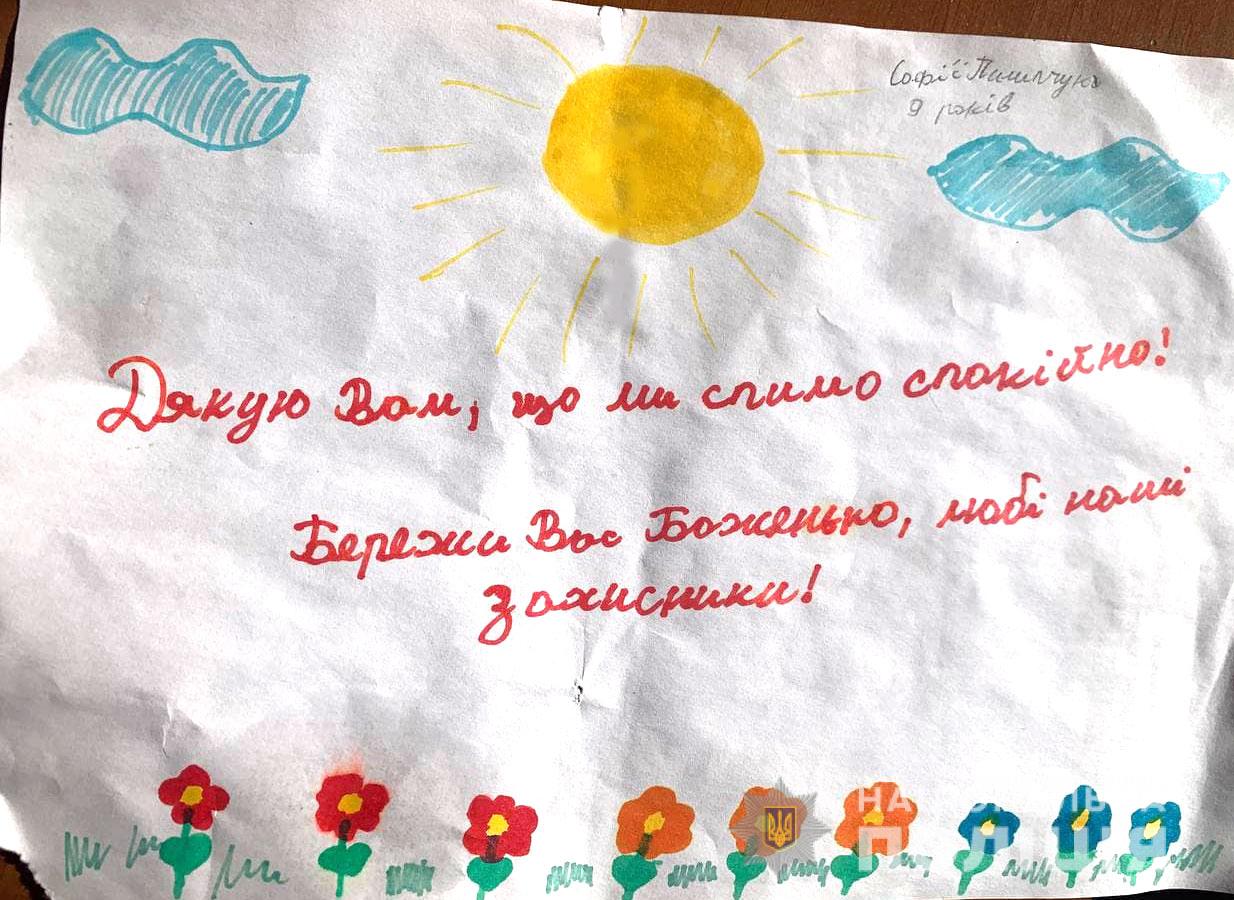 Софії
9 років
Дякую Вам, що ми спимо спокійно!
Бережи Вас Боженько, любі наші
захисники!
НАЦІОНАЛЬНА
ПОЛІЦІЯ